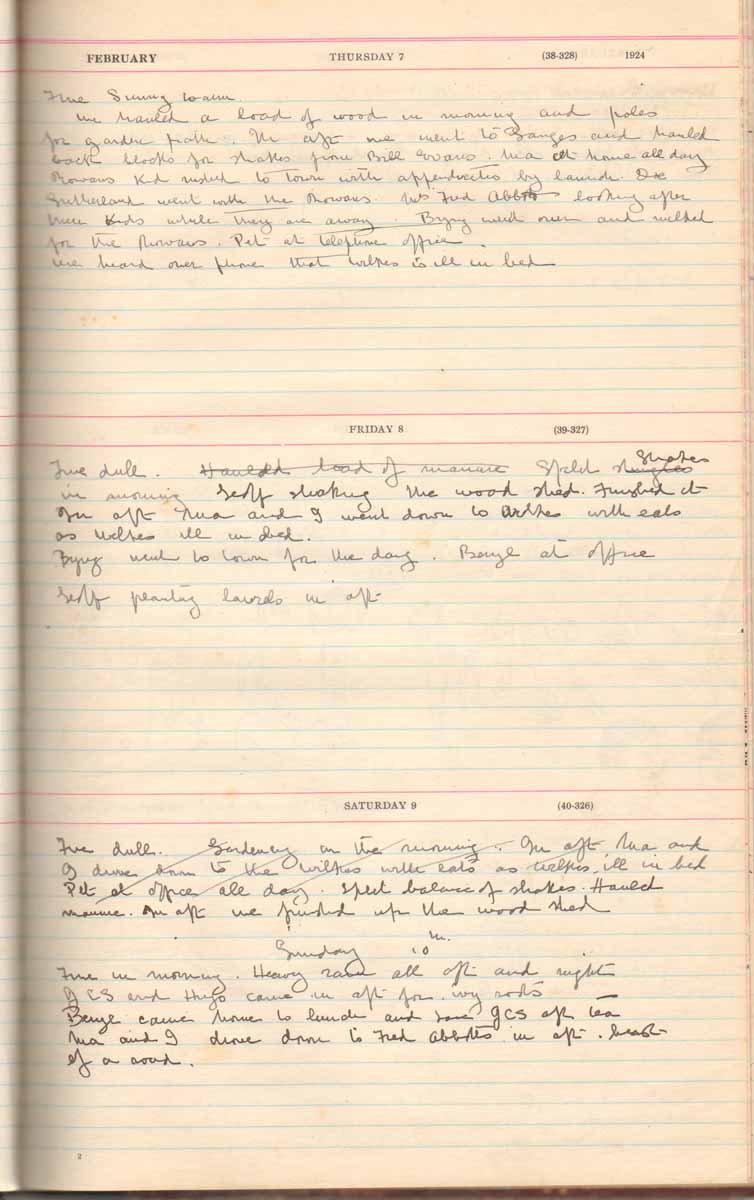 FEBRUARY THURSDAY 7 (38-328) 1924
Fine Sunny warm.
We hauled a load of wood in morning and poles
for garden path. In aft we went to Ganges and hauled
back blocks for shakes from Bill Evans. Ma at home all day
Rowans Kid rushed to town with appendicites by launch. Dr
Sutherland went with the Rowans. Mrs Fred Abbott looking after
these Kids while they are away. Byng went over and milked
for the Rowans. Pet at telephone office.
We heard over phone that Wilkes is ill in bed
FRIDAY 8 (39-327)
Fine dull. Hauled load of manure Split shingles Shakes
in morning Geoff shaking the wood shed. Finished it
In aft Ma and I went down to Wilkes with eats
as Wilkes ill in bed.
Byng went to town for the day. Beryl at office
Geoff planting laurels in aft
SATURDAY 9 (40-326)
Fine dull. Gardening in the morning. In aft Ma and
I drove down to the Wilkes with eats as Wilkes ill in bed
Pet at office all day. Split balance of shakes. Hauled
manure. In aft we finished up the wood shed
Sunday 10th.
Fine in morning. Heavy rain all aft and night
JCS and Hugo came in aft for ivy roots
Beryl came home to lunch and JCS aft tea
Ma and I drove down to Fred Abbotts in aft. beast
of a road.
2